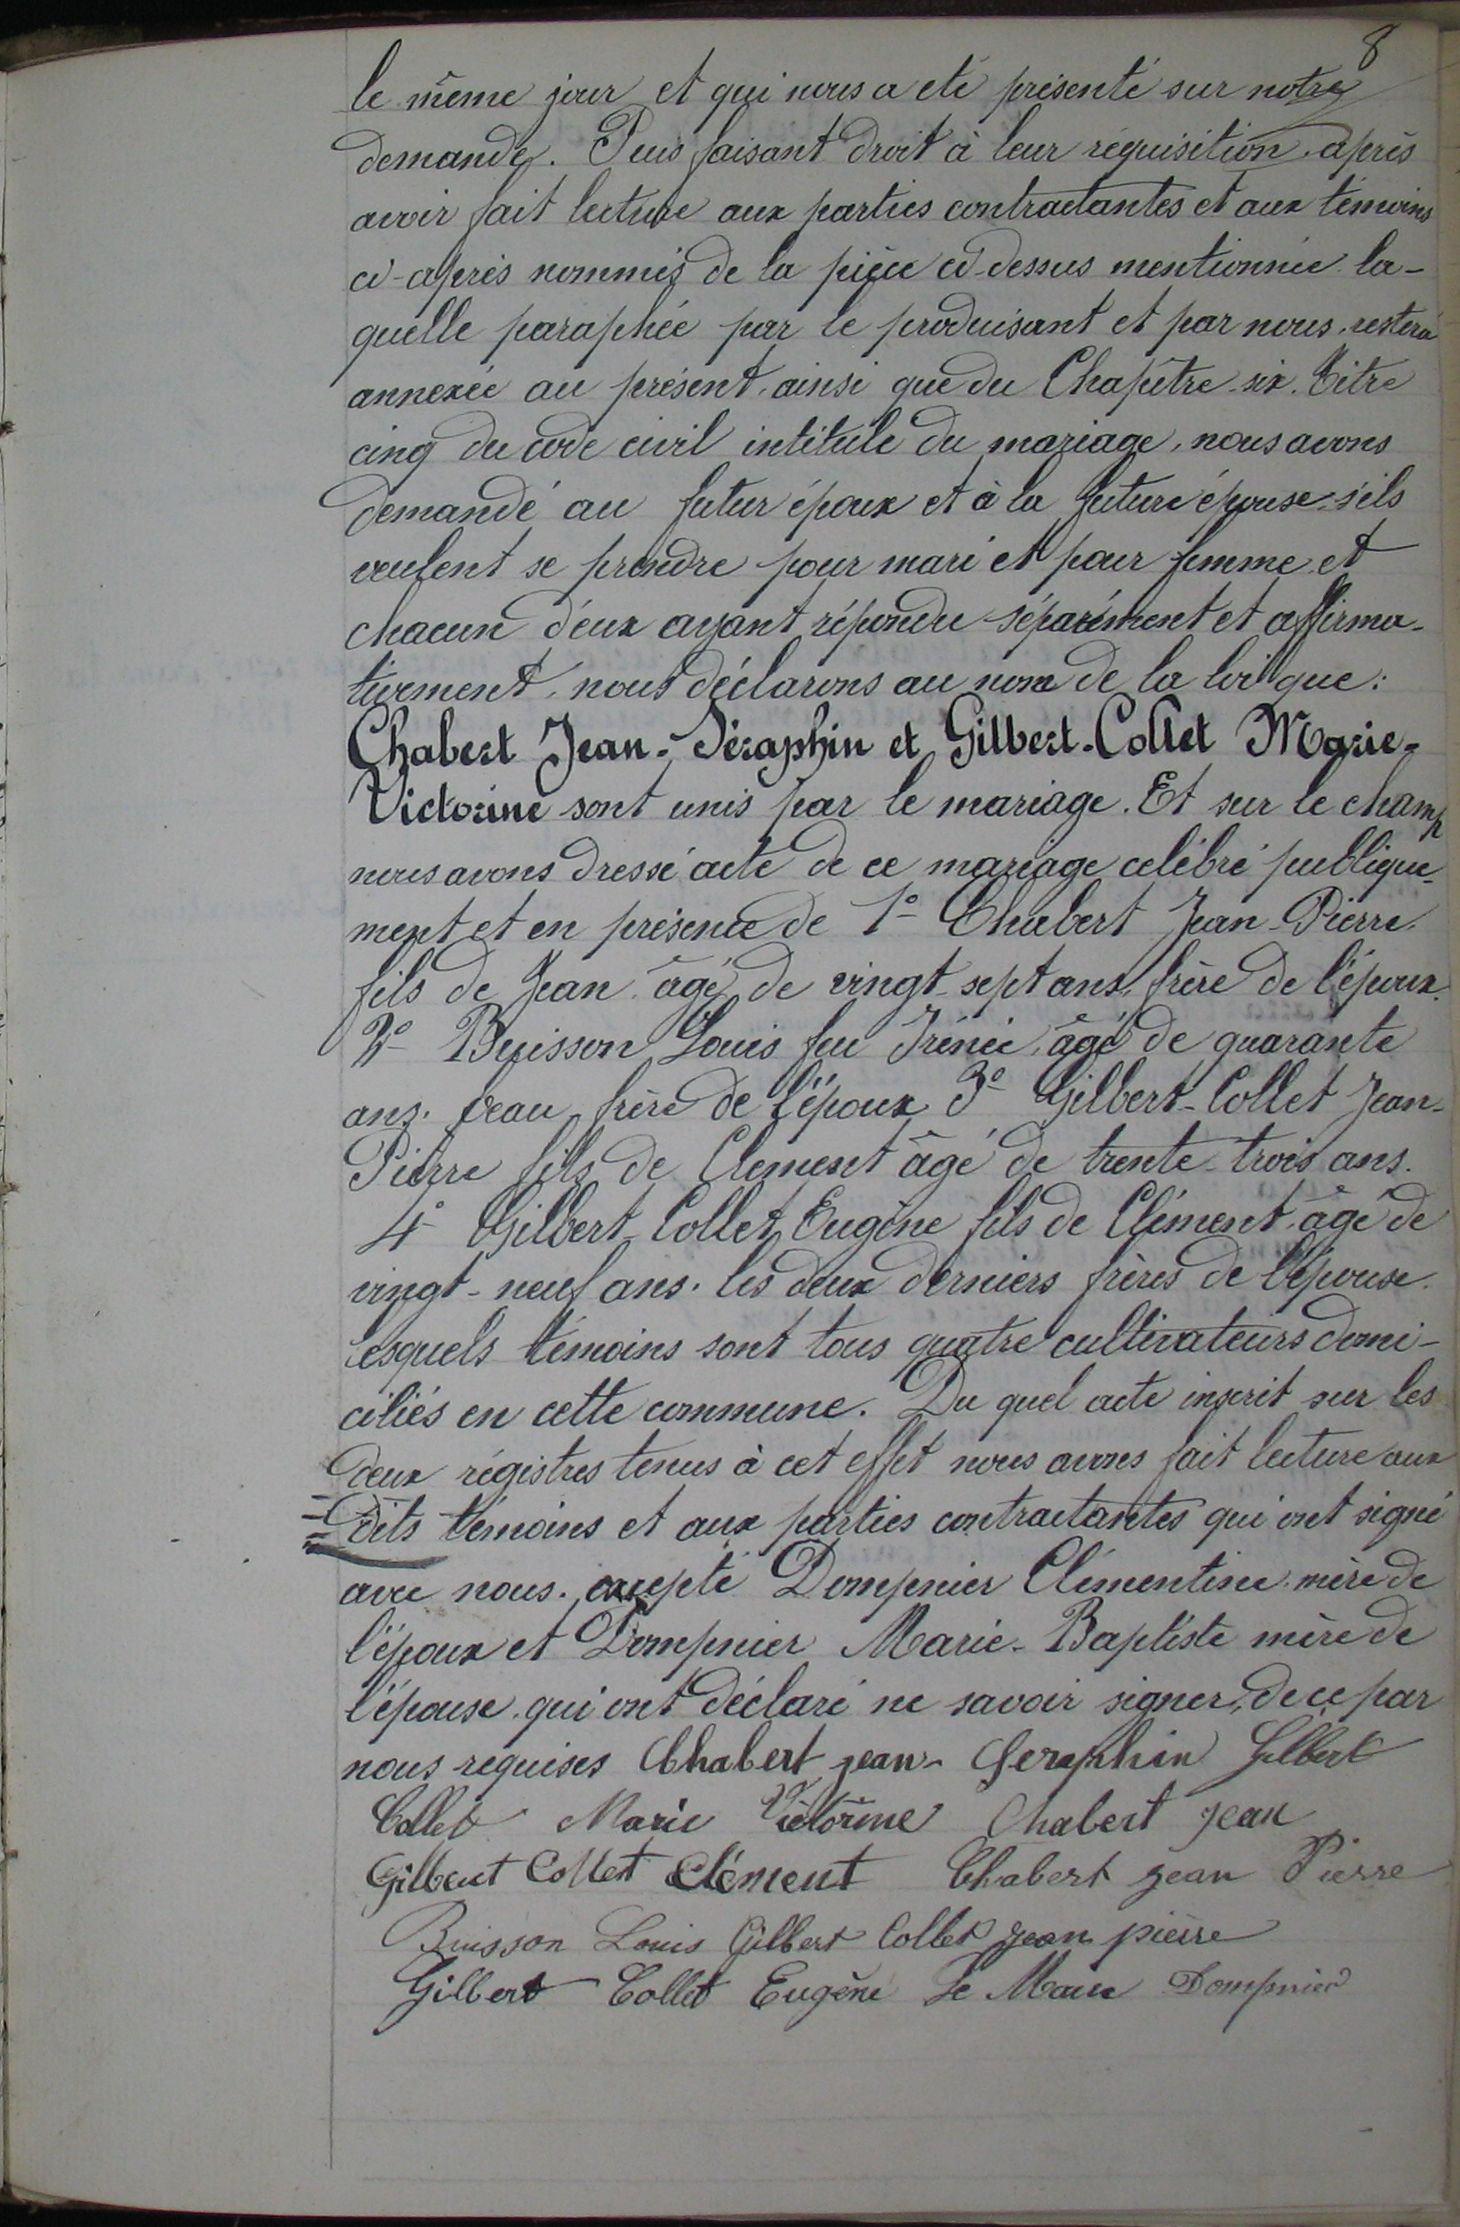 8
le même jour et qui nous a eté présenté sur notre
demande. Puis faisant droit à leur réquisition. après
avoir fait lecture aux parties contractantes et aux témoins
ci-après nommés de la pièce ci-dessus mentionnée. la-
quelle paraphée par le produisant et par nous, restera
annexée au présent, ainsi que du Chapitre six. Titre
cinq du code civil intitulé du mariage, nous avons
demandé au futur époux et à la future épouse s'ils
veulent se prendre pour mari et pour femme et
chacun d'eux ayant répondu séparément et affirma-
tivement, nous déclarons au nom de la loi que:
Chabert Jean-Séraphin et Gilbert-Collet Marie-
Victorine sont unis par le mariage. Et sur le champ
nous avons dressé acte de ce mariage célébré publique-
ment et en présence de 1° Chabert Jean-Pierre.
fils de Jean âgé de vingt-sept ans, frère de l'époux.
2° Buisson Louis feu Irénée, âgé de quarante
ans. beau frère de l'époux 3° Gilbert-Collet Jean-
Pierre fils de Clement âgé de trente-trois ans.
4° Gilbert-Collet Eugène fils de Clément âgé de
vingt-neuf ans. les deux derniers frères de l'épouse.
lesquels témoins sont tous quatre cultivateurs domi-
ciliés en cette commune. Du quel acte inscrit sur les
deux régistres tenus à cet effet nous avons fait lecture aux
=dits témoins et aux parties contractantes qui ont signé
avec nous. excepté Dompnier Clémentine mère de
l'époux et Dompnier Marie-Baptiste mère de
l'épouse. qui ont déclaré ne savoir signer, de ce par
nous requises Chabert jean-Seraphin Gilbert
Collet Marie Victorine Chabert Jean
Gilbert Collet Clément Chabert Jean Pierre
Buisson Louis Gilbert Collet Jean pierre
Gilbert Collet Eugène Le Maire Dompnier